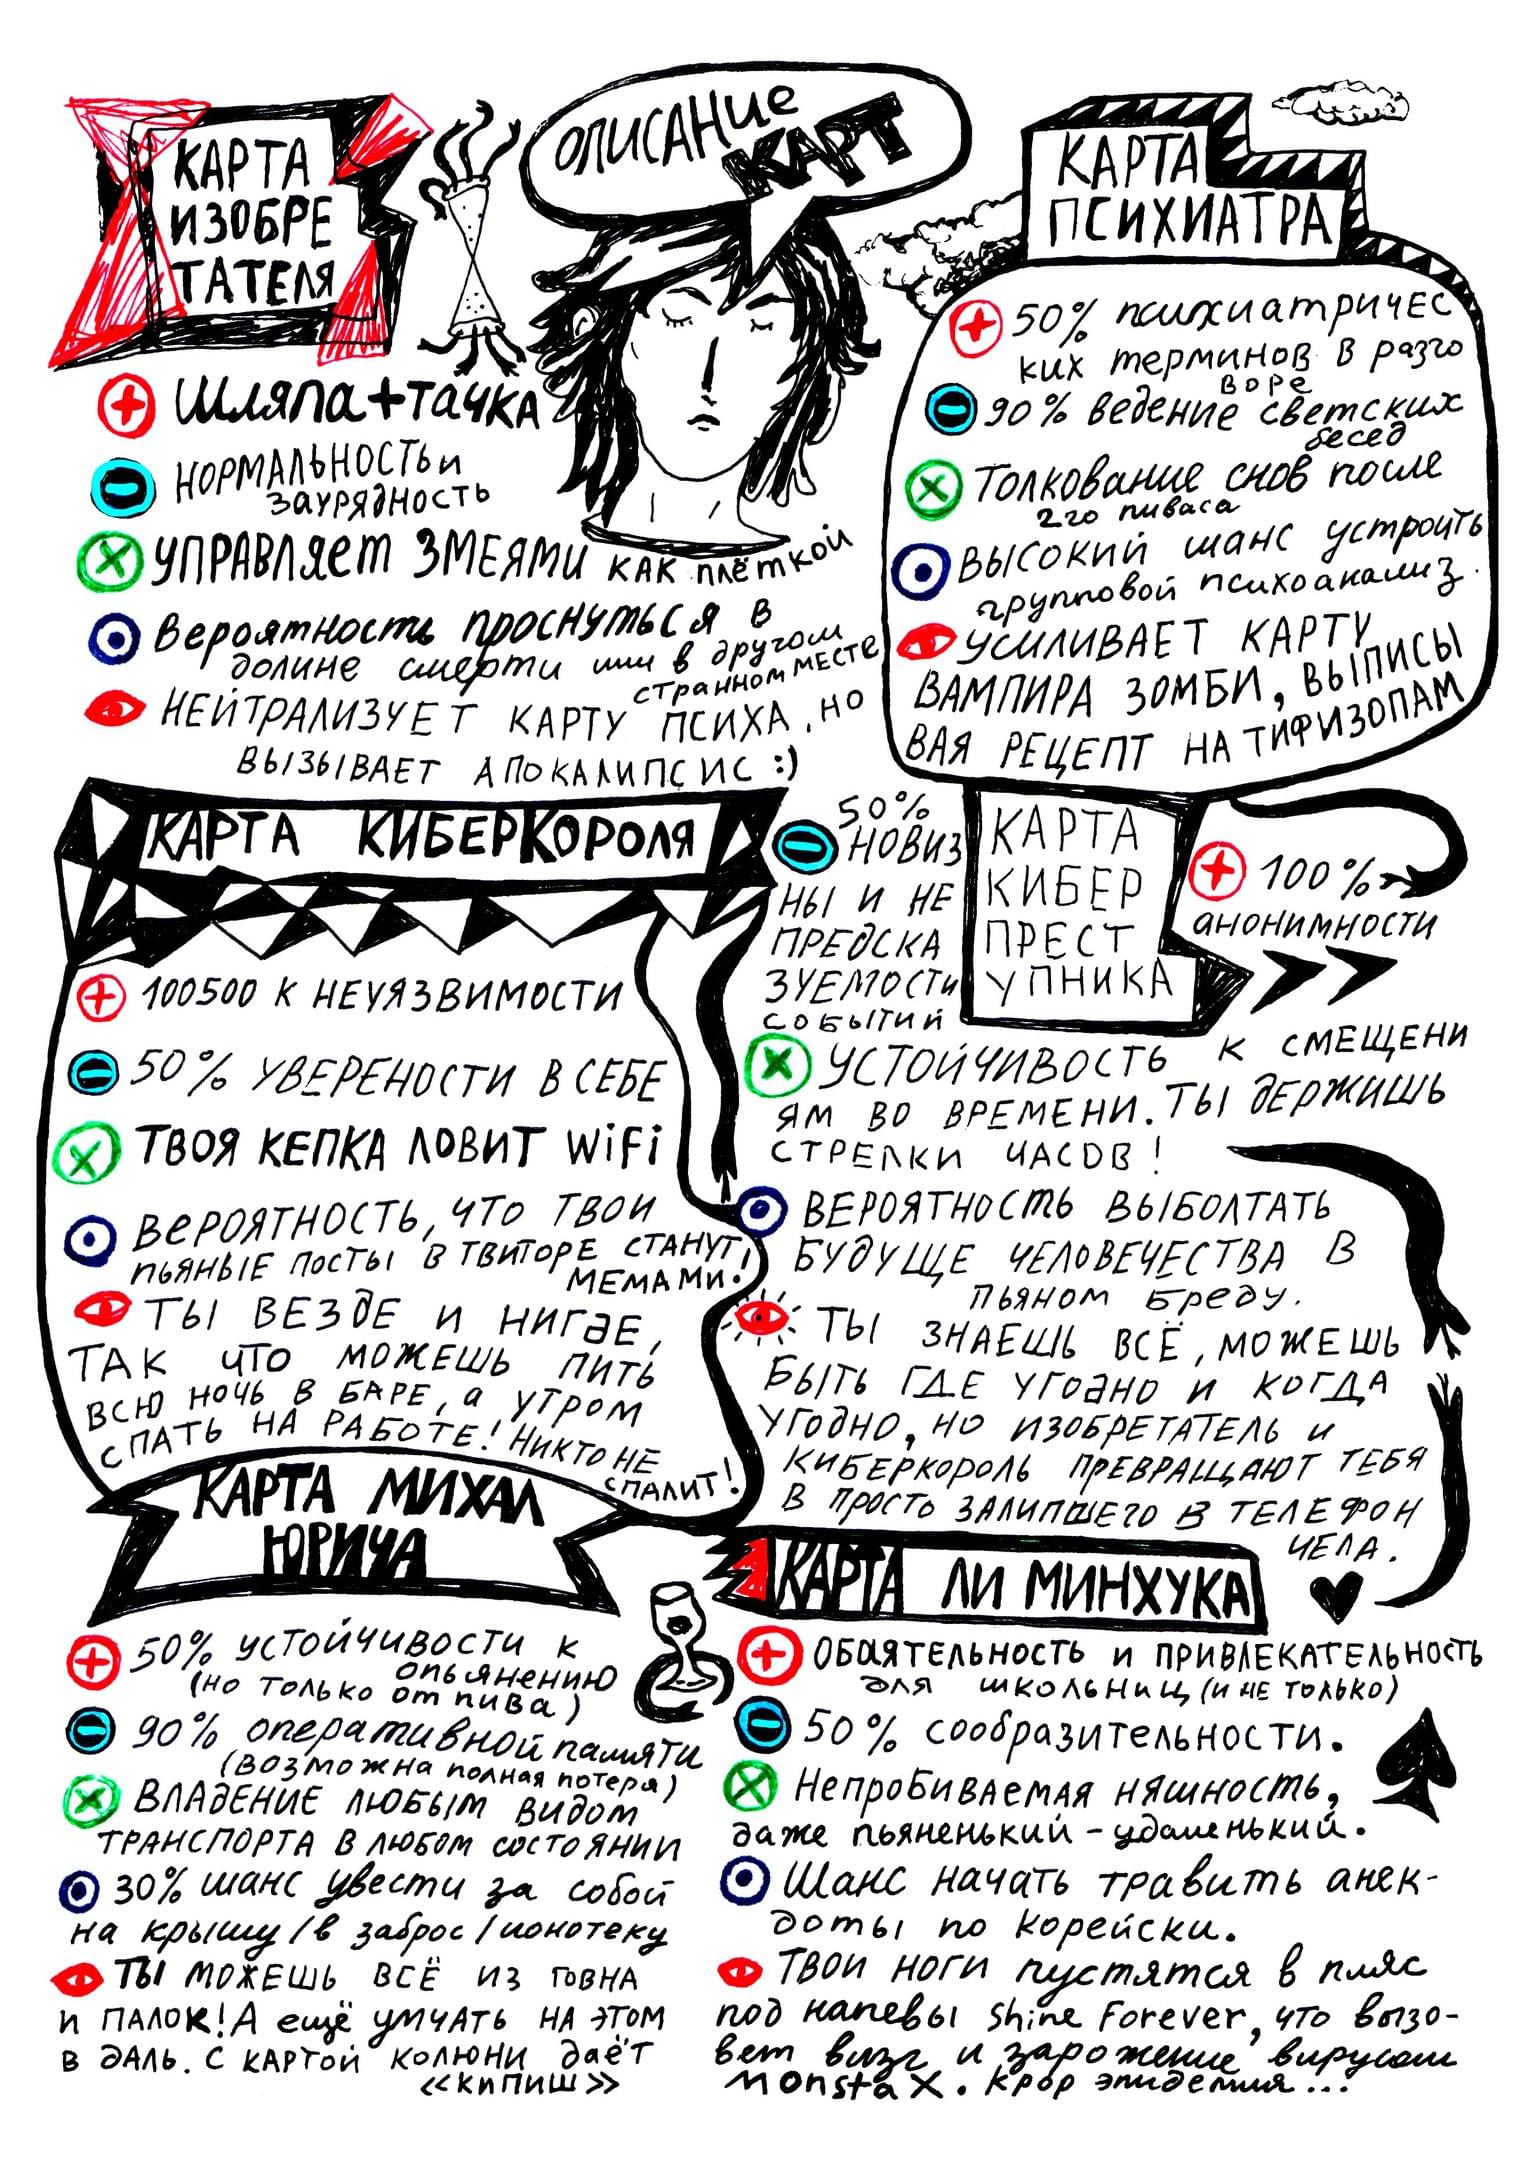 ОПИСАНИЕ
КАРТ
КАРТА
ИЗОБРЕ
ТАТЕЛЯ
ШЛЯПА+ТАЧКА
НОРМАЛЬНОСТЬ и
ЗАУРЯДНОСТЬ
УПРАВЛЯЕТ ЗМЕЯМИ КАК ПЛЁТКОЙ
Вероятность проснуться в
долине смерти или в другом
странном месте
НЕЙТРАЛИЗУЕТ КАРТУ ПСИХА, НО
ВЫЗЫВАЕТ АПОКАЛИПСИС :)
КАРТА
ПСИХИАТРА
50% психиатричес
ких терминов в разго
воре
90% ведение светских
бесед
Толкование снов после
2го пиваса
Высокий шанс устроить
групповой психоанализ.
УСИЛИВАЕТ КАРТУ
ВАМПИРА ЗОМБИ, ВЫПИСЫ
ВАЯ РЕЦЕПТ НА ТИФИЗОПАМ
КАРТА КИБЕРКОРОЛЯ
100500 К НЕУЯЗВИМОСТИ
50% УВЕРЕНОСТИ В СЕБЕ
ТВОЯ КЕПКА ЛОВИТ WiFi
ВЕРОЯТНОСТЬ, ЧТО ТВОИ
ПЬЯНЫЕ ПОСТЫ В ТВИТОРЕ СТАНУТ
МЕМАМИ!
ТЫ ВЕЗДЕ И НИГДЕ,
ТАК ЧТО МОЖЕШЬ ПИТЬ
ВСЮ НОЧЬ В БАРЕ, а УТРОМ
СПАТЬ НА РАБОТЕ! НИКТО НЕ
СПАЛИТ!
КАРТА
КИБЕР
ПРЕСТ
УПНИКА
100%
АНОНИМНОСТИ
50%
НОВИЗ
НЫ И НЕ
ПРЕДСКА
ЗУЕМОСТИ
СОБЫТИЙ
УСТОЙЧИВОСТЬ К СМЕЩЕНИ
ЯМ ВО ВРЕМЕНИ. ТЫ ДЕРЖИШЬ
СТРЕЛКИ ЧАСОВ!
ВЕРОЯТНОСТЬ ВЫБОЛТАТЬ
БУДУЩЕ ЧЕЛОВЕЧЕСТВА В
ПЬЯНОМ БРЕДУ.
ТЫ ЗНАЕШЬ ВСЁ, МОЖЕШЬ
БЫТЬ ГДЕ УГОДНО И КОГДА
УГОДНО, НО ИЗОБРЕТАТЕЛЬ И
КИБЕРКОРОЛЬ ПРЕВРАЩАЮТ ТЕБЯ
В ПРОСТО ЗАЛИПШЕГО В ТЕЛЕФОН
ЧЕЛА.
КАРТА МИХАЛ
ЮРИЧА
50% УСТОЙЧИВОСТИ К
ОПЬЯНЕНИЮ
(но только от пива)
90% оперативной памяти
(возможна полная потеря)
ВЛАДЕНИЕ ЛЮБЫМ ВИДОМ
ТРАНСПОРТА В ЛЮБОМ СОСТОЯНИИ
30% шанс увести за собой
на крышу/в заброс/ионотеку
ТЫ МОЖЕШЬ ВСЁ ИЗ ГОВНА
И ПАЛОК! А ещё УМЧАТЬ НА ЭТОМ
В ДАЛЬ. С КАРТОЙ КОЛЮНИ ДАЁТ
«КИПИШ»
КАРТА ЛИ МИНХУКА
ОБАЯТЕЛЬНОСТЬ И ПРИВЛЕКАТЕЛЬНОСТЬ
для школьниц (И НЕ ТОЛЬКО)
50% сообразительности.
Непробиваемая няшность,
даже пьяненький - удаленький.
Шанс начать травить анек-
доты по корейски.
Твои ноги пустятся в пляс
под напевы Shine Forever, что вызо-
вет визг и зарожение вирусом
Monsta X. Kpop эпидемия...